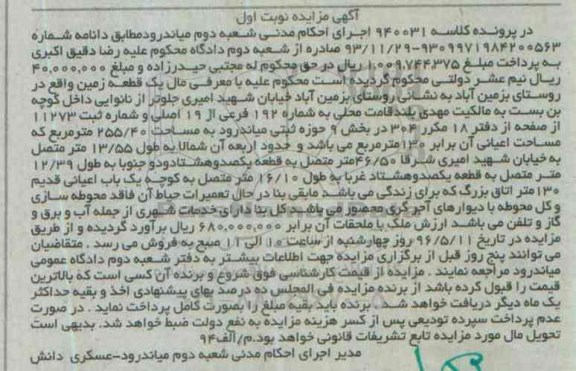 آگهی مزایده نوبت اول
در پرونده کلاسه ۹۴۰۰۳۱ اجرای احکام مدنی شعبه دوم میاندرودمطابق دادنامه شماره
۹۳/۱۱/۲۹-۹۳۰۹۹۷۱۹۸۴۲۰۰۵۶۳ صادره از شعبه دوم دادگاه محکوم علیه رضا دقیق اکبری
به پرداخت مبلغ ۱,۰۰۹,۷۴۴,۳۷۵ ریال در حق محکوم له مجتبی حیدرزاده و مبلغ ۴۰,۰۰۰,۰۰۰
ریال نیم عشر دولتی محکوم گردیده است محکوم علیه با معرفی مال یک قطعه زمین واقع در
روستای بزمین آباد به نشانی روستای بزمین آباد خیابان شهید امیری جلوتر از نانوایی داخل کوچه
بن بست به مالکیت مهدی بلندقامت محلی به شماره ۱۹۲ فرعی از ۱۹ اصلی و شماره ثبت ۱۱۲۷۳
از صفحه از دفتر ۱۸ مکرر ۳۰۴ در بخش ۹ حوزه ثبتی میاندرود به مساحت ۲۵۵/۴۰ مترمربع که
مساحت اعیانی آن برابر ۱۳۰مترمربع می باشد و حدود اربعه آن شمالا به طول ۱۳/۵۵ متر متصل
به خیابان شهید امیری شرقا ۴۶/۵۰متر متصل به قطعه یکصدوهشتادودو جنوبا به طول ۱۲/۳۹
متر متصل به قطعه یکصدوهشتاد غربا به طول ۱۶/۱۰ متر متصل به کوچه یک باب اعیانی قدیم
۱۳۰متر اتاق بزرگ که برای زندگی می باشد مابقی بنا در حال تعمیرات حیاط آن فاقد محوطه سازی
و کل محوطه با دیوارهای آجر کری محصور می باشد کل بنا دارای خدمات شهری از جمله آب و برق و
گاز و تلفن می باشد ارزش ملک با ملحقات آن برابر ۶۸۰,۰۰۰,۰۰۰ ریال برآورد گردیده و از طریق
مزایده در تاریخ ۹۶/۵/۱۱ روز چهارشنبه از ساعت ۱۰ الی ۱۱ صبح به فروش می رسد . متقاضیان
می توانند پنج روز قبل از برگزاری مزایده جهت اطلاعات بیشتر به دفتر شعبه دوم دادگاه عمومی
میاندرود مراجعه نمایند . مزایده از قیمت کارشناسی فوق شروع و برنده آن کسی است که بالاترین
قیمت را قبول کرده باشد از برنده مزایده فی المجلس ده درصد بهای پیشنهادی اخذ و بقیه حداکثر
یک ماه دیگر دریافت خواهد شد . برنده باید بقیه مبلغ را بصورت کامل پرداخت نماید . در صورت
عدم پرداخت سپرده تودیعی پس از کسر هزینه مزایده به نفع دولت ضبط خواهد شد. بدیهی است
تحویل مال مورد مزایده تابع تشریفات قانونی خواهد بود.م/الف۹۴
مدیر اجرای احکام مدنی شعبه دوم میاندرود-عسکری دانش